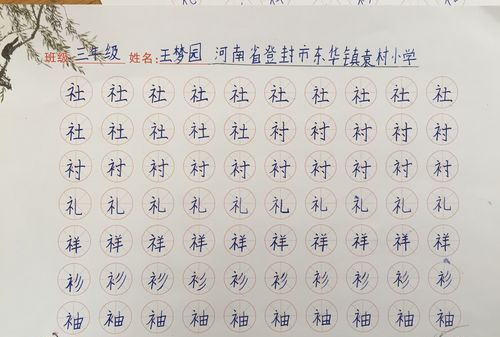 班级:三年级 姓名:王梦园 河南省登封市东华镇袁村小学
社社社社社社社社社社
社社社社社衬衬衬衬衬
衬衬衬衬衬衬衬衬衬衬
礼礼礼礼礼礼礼礼礼礼
祥祥祥祥祥祥祥祥祥祥
衫衫衫衫衫衫衫衫衫衫
袖袖袖袖袖袖袖袖袖袖